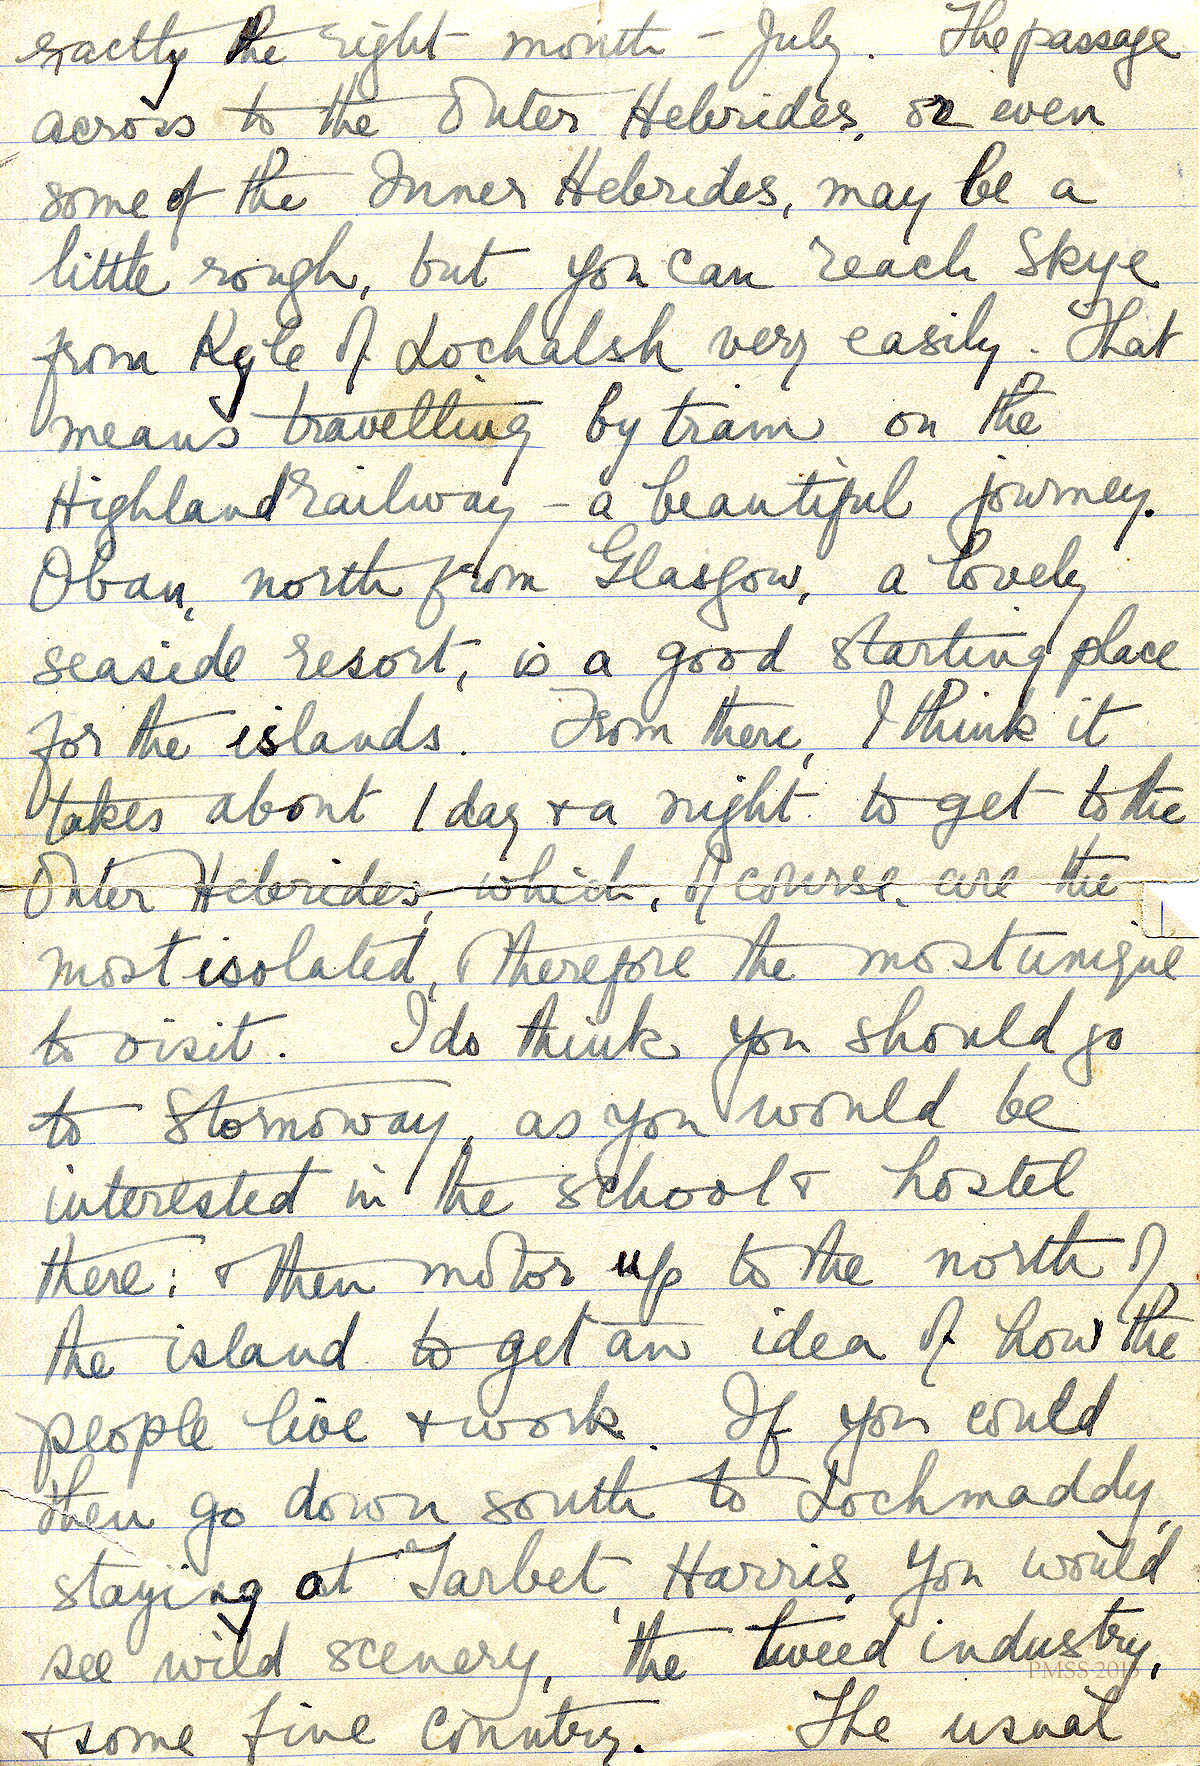 exactly the right month - July. The passage
across to the Outer Hebrides, or even
some of the Inner Hebrides, may be a
little rough, but you can reach Skye
from Kyle of Lochalsh very easily. That
means travelling by train on the
Highland railway - a beautiful journey.
Oban, north from Glasgow, a lovely
seaside resort, is a good starting place
for the islands. From there, I think it
takes about 1 day & a night to get to the
Outer Hebrides, which, of course, are the
most isolated, & therefore the most unique
to visit. I do think you should go
to Stornoway, as you would be
interested in the school & hostel
there; & then motor up to the north of
the island to get an idea of how the
people live & work. If you could
then go down south to Lochmaddy,
staying at Tarbet, Harris, you would
see wild scenery, the tweed industry,
PMSS 2015
& some fine country. The usual